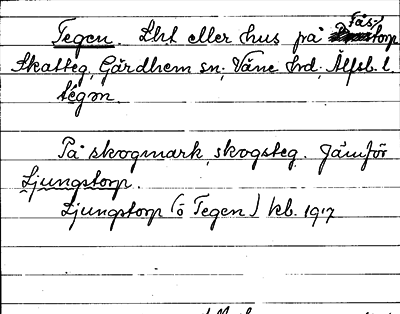 Tegen. Lht eller hus på Fäs-torp
Skatteg, Gärdhem sn, Väne hd, Älfsb. l.
tégən.
På skogmark, skogsteg. Jämför
Ljungstorp.
Ljungstorp (ö Tegen) kb. 1917